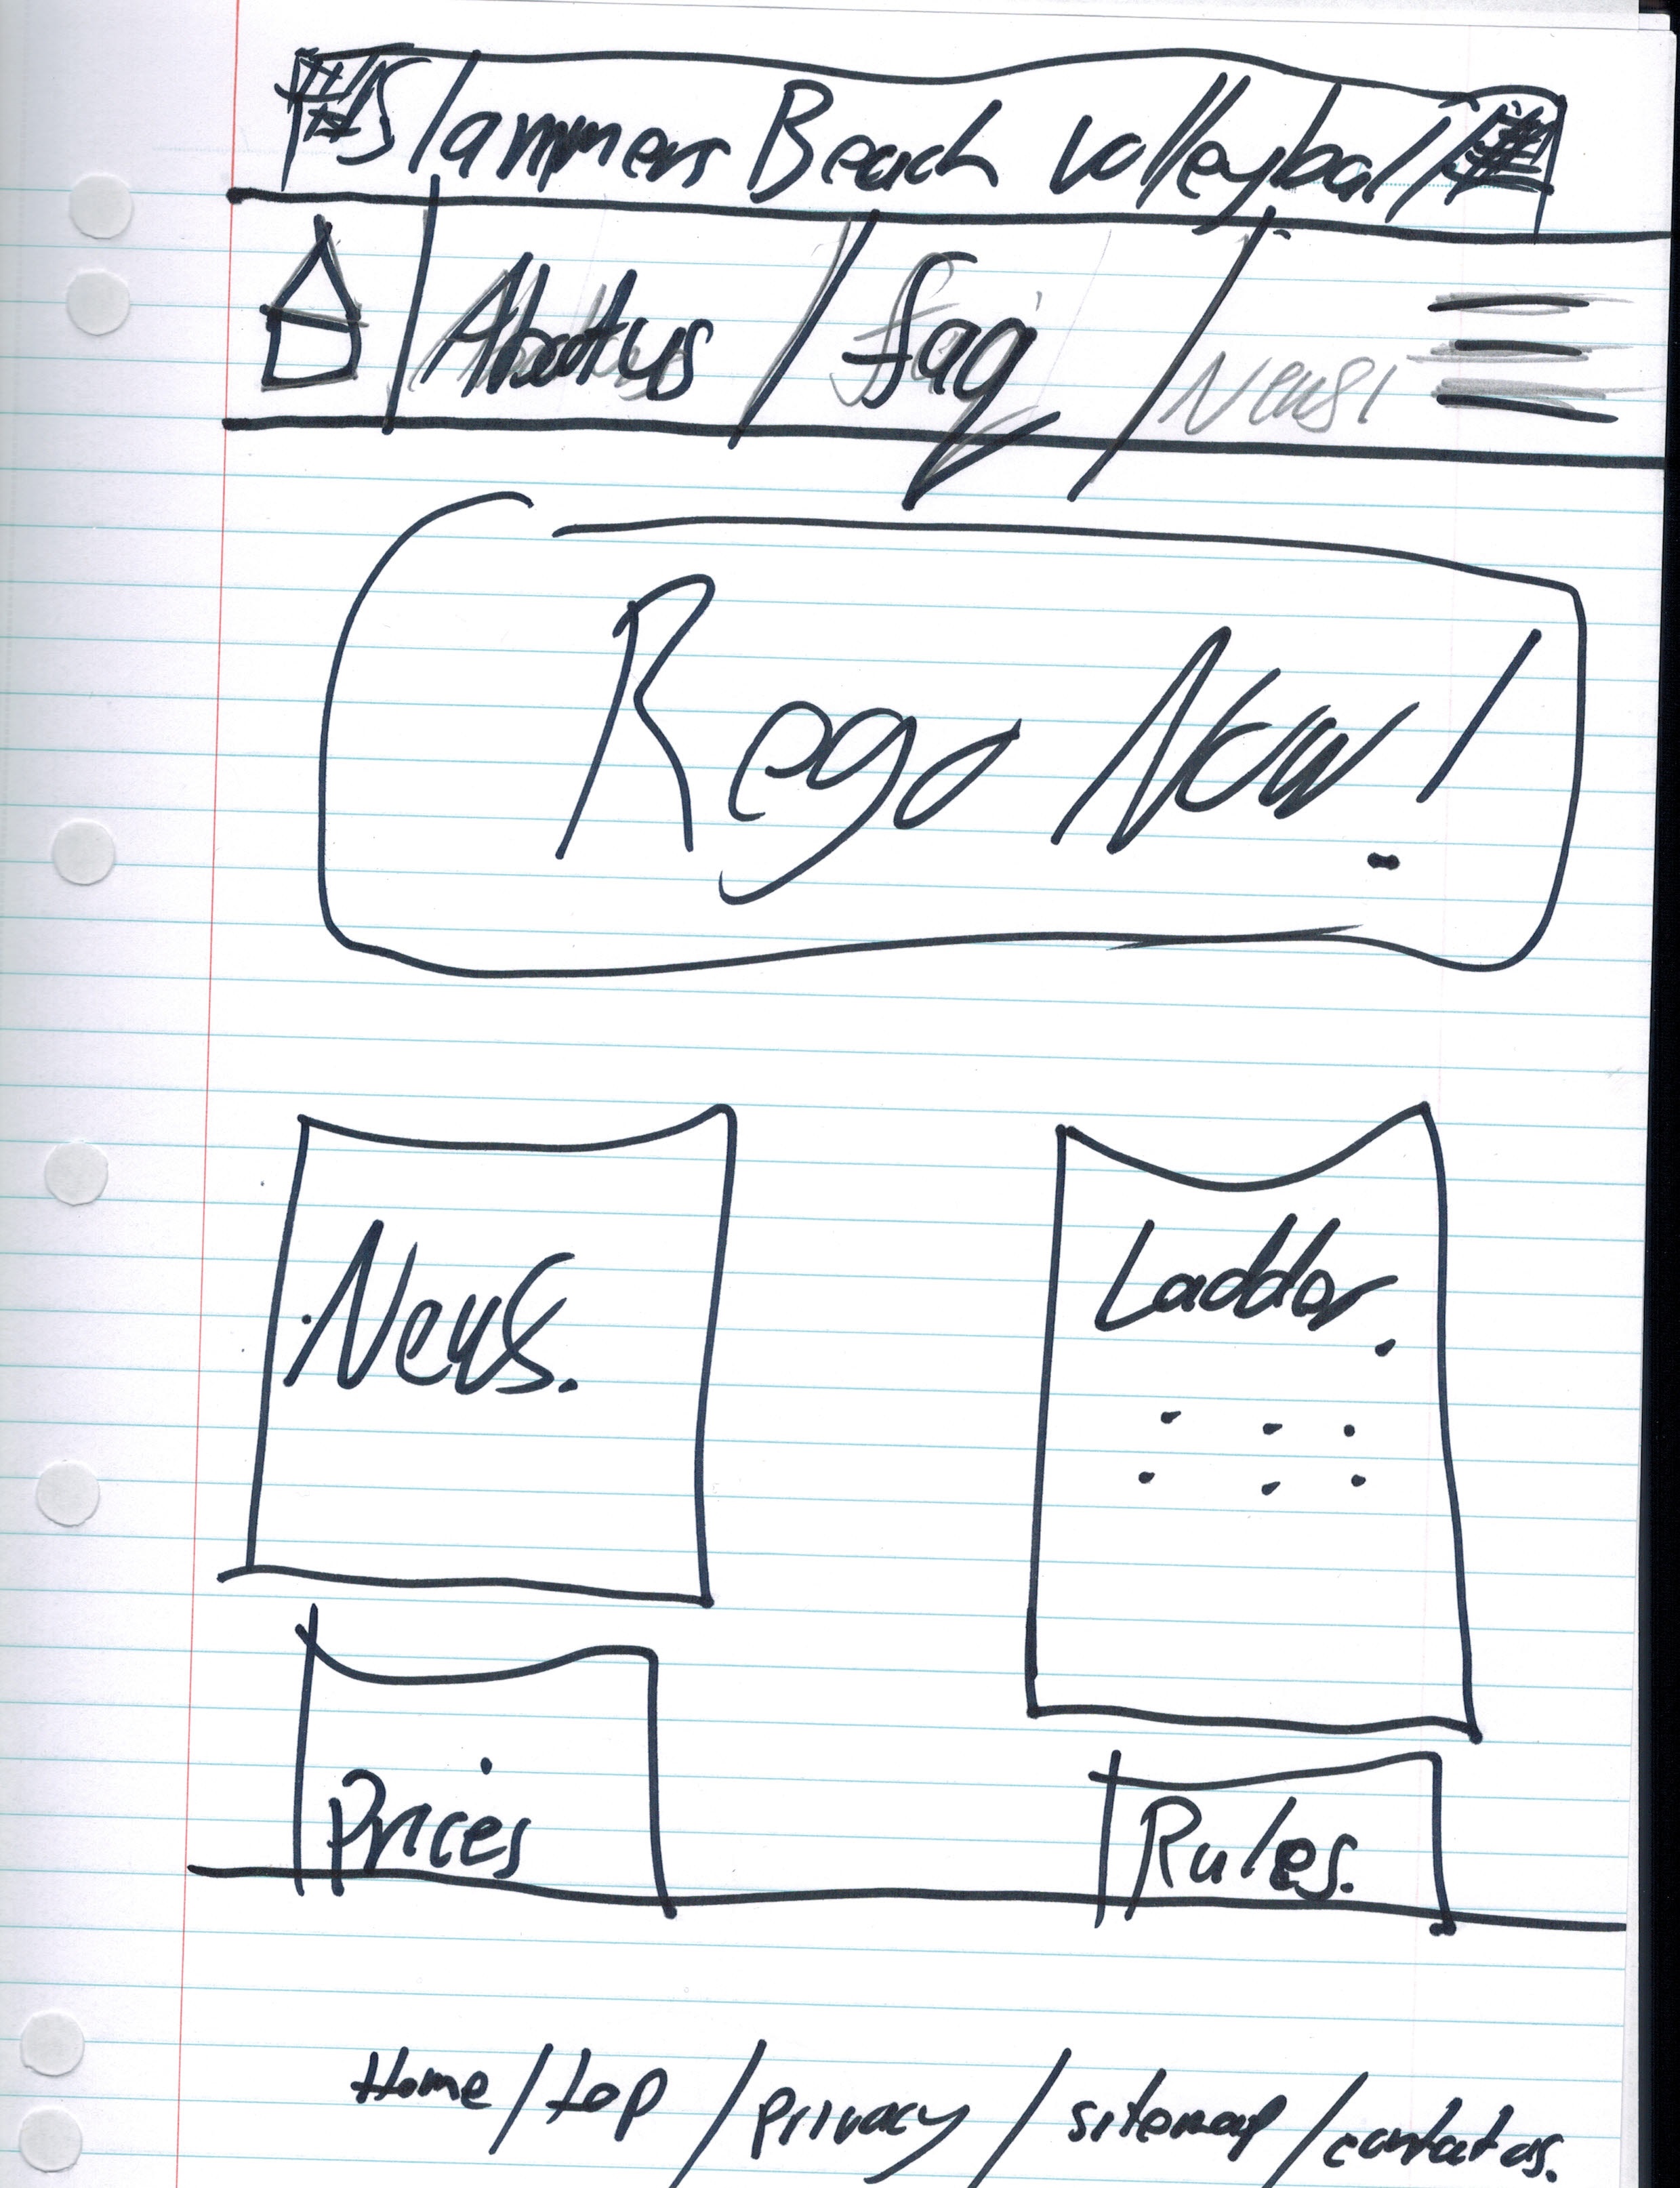 Slammers Beach volleyball
About us / faq / News!
Rego Now!
News.
Ladder.
Prices
Rules.
Home / top / privacy / sitemap / contact us.